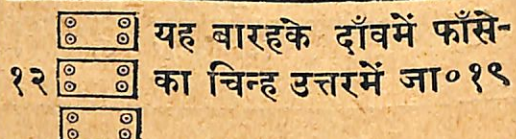 यह बारहके दाँवमें फाँसे-
१२ का चिन्ह उत्तरमें जा०१९